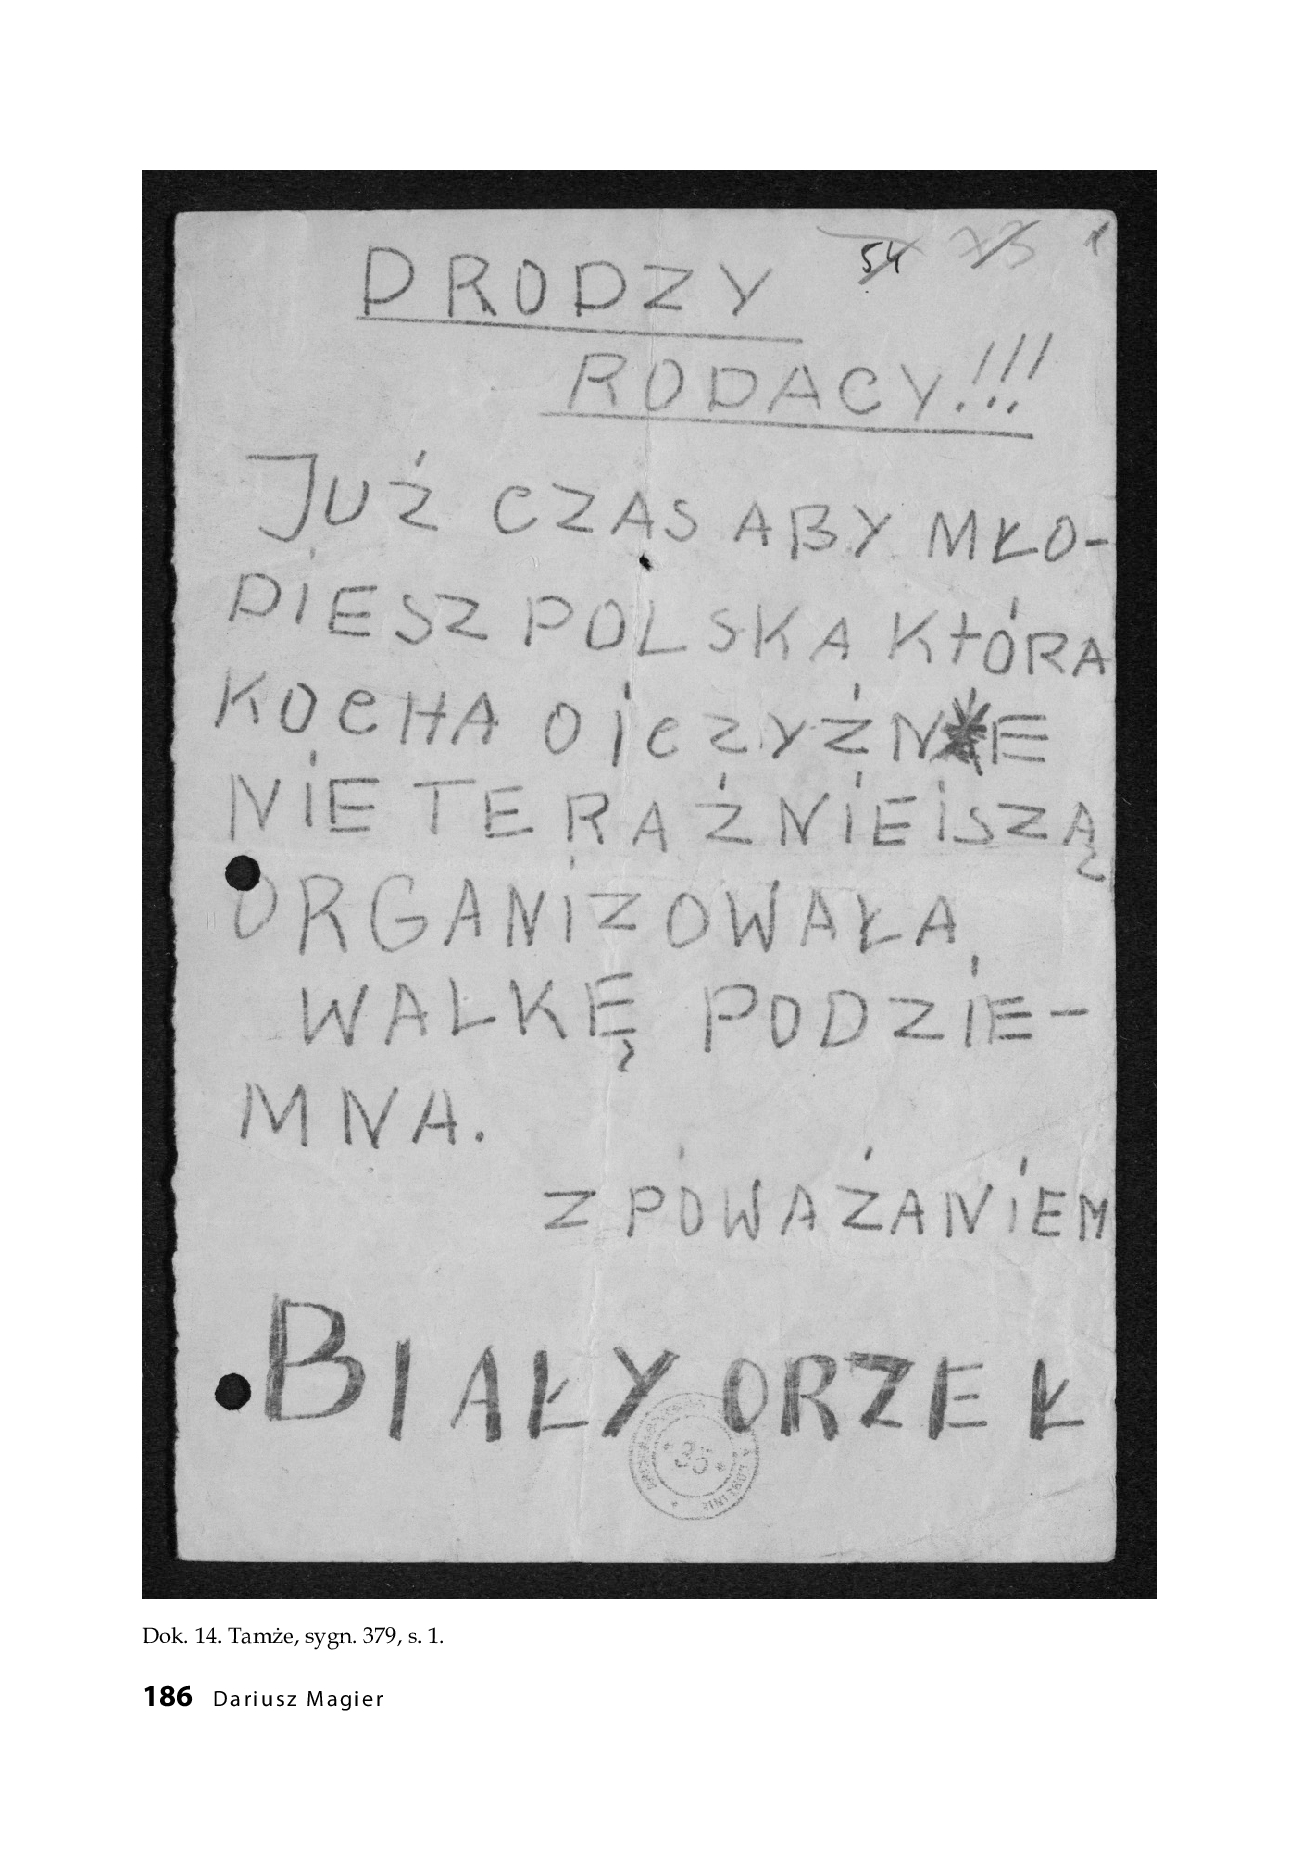 54 73 1
DRODZY
RODACY!!!
JUŻ CZAS ABY MŁO-
DIESZ POLSKA KTÓRA
KOCHA OiCZYŹNE
NiE TERAŹNiEiSZĄ
ORGANiZOWAŁA,
WALKĘ PODZIE-
MNA.
Z POWAŻANiEM
BIAŁY ORZEŁ
35
Dok. 14. Tamże, sygn. 379, s. 1.
186 Dariusz Magier